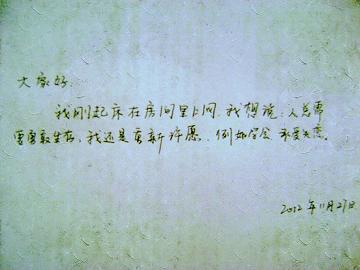 大家好：
我刚起床在房间里上网，我想说：人总需
要勇敢生存，我还是重新许愿，例如学会 承受失恋。
2012年11月27日